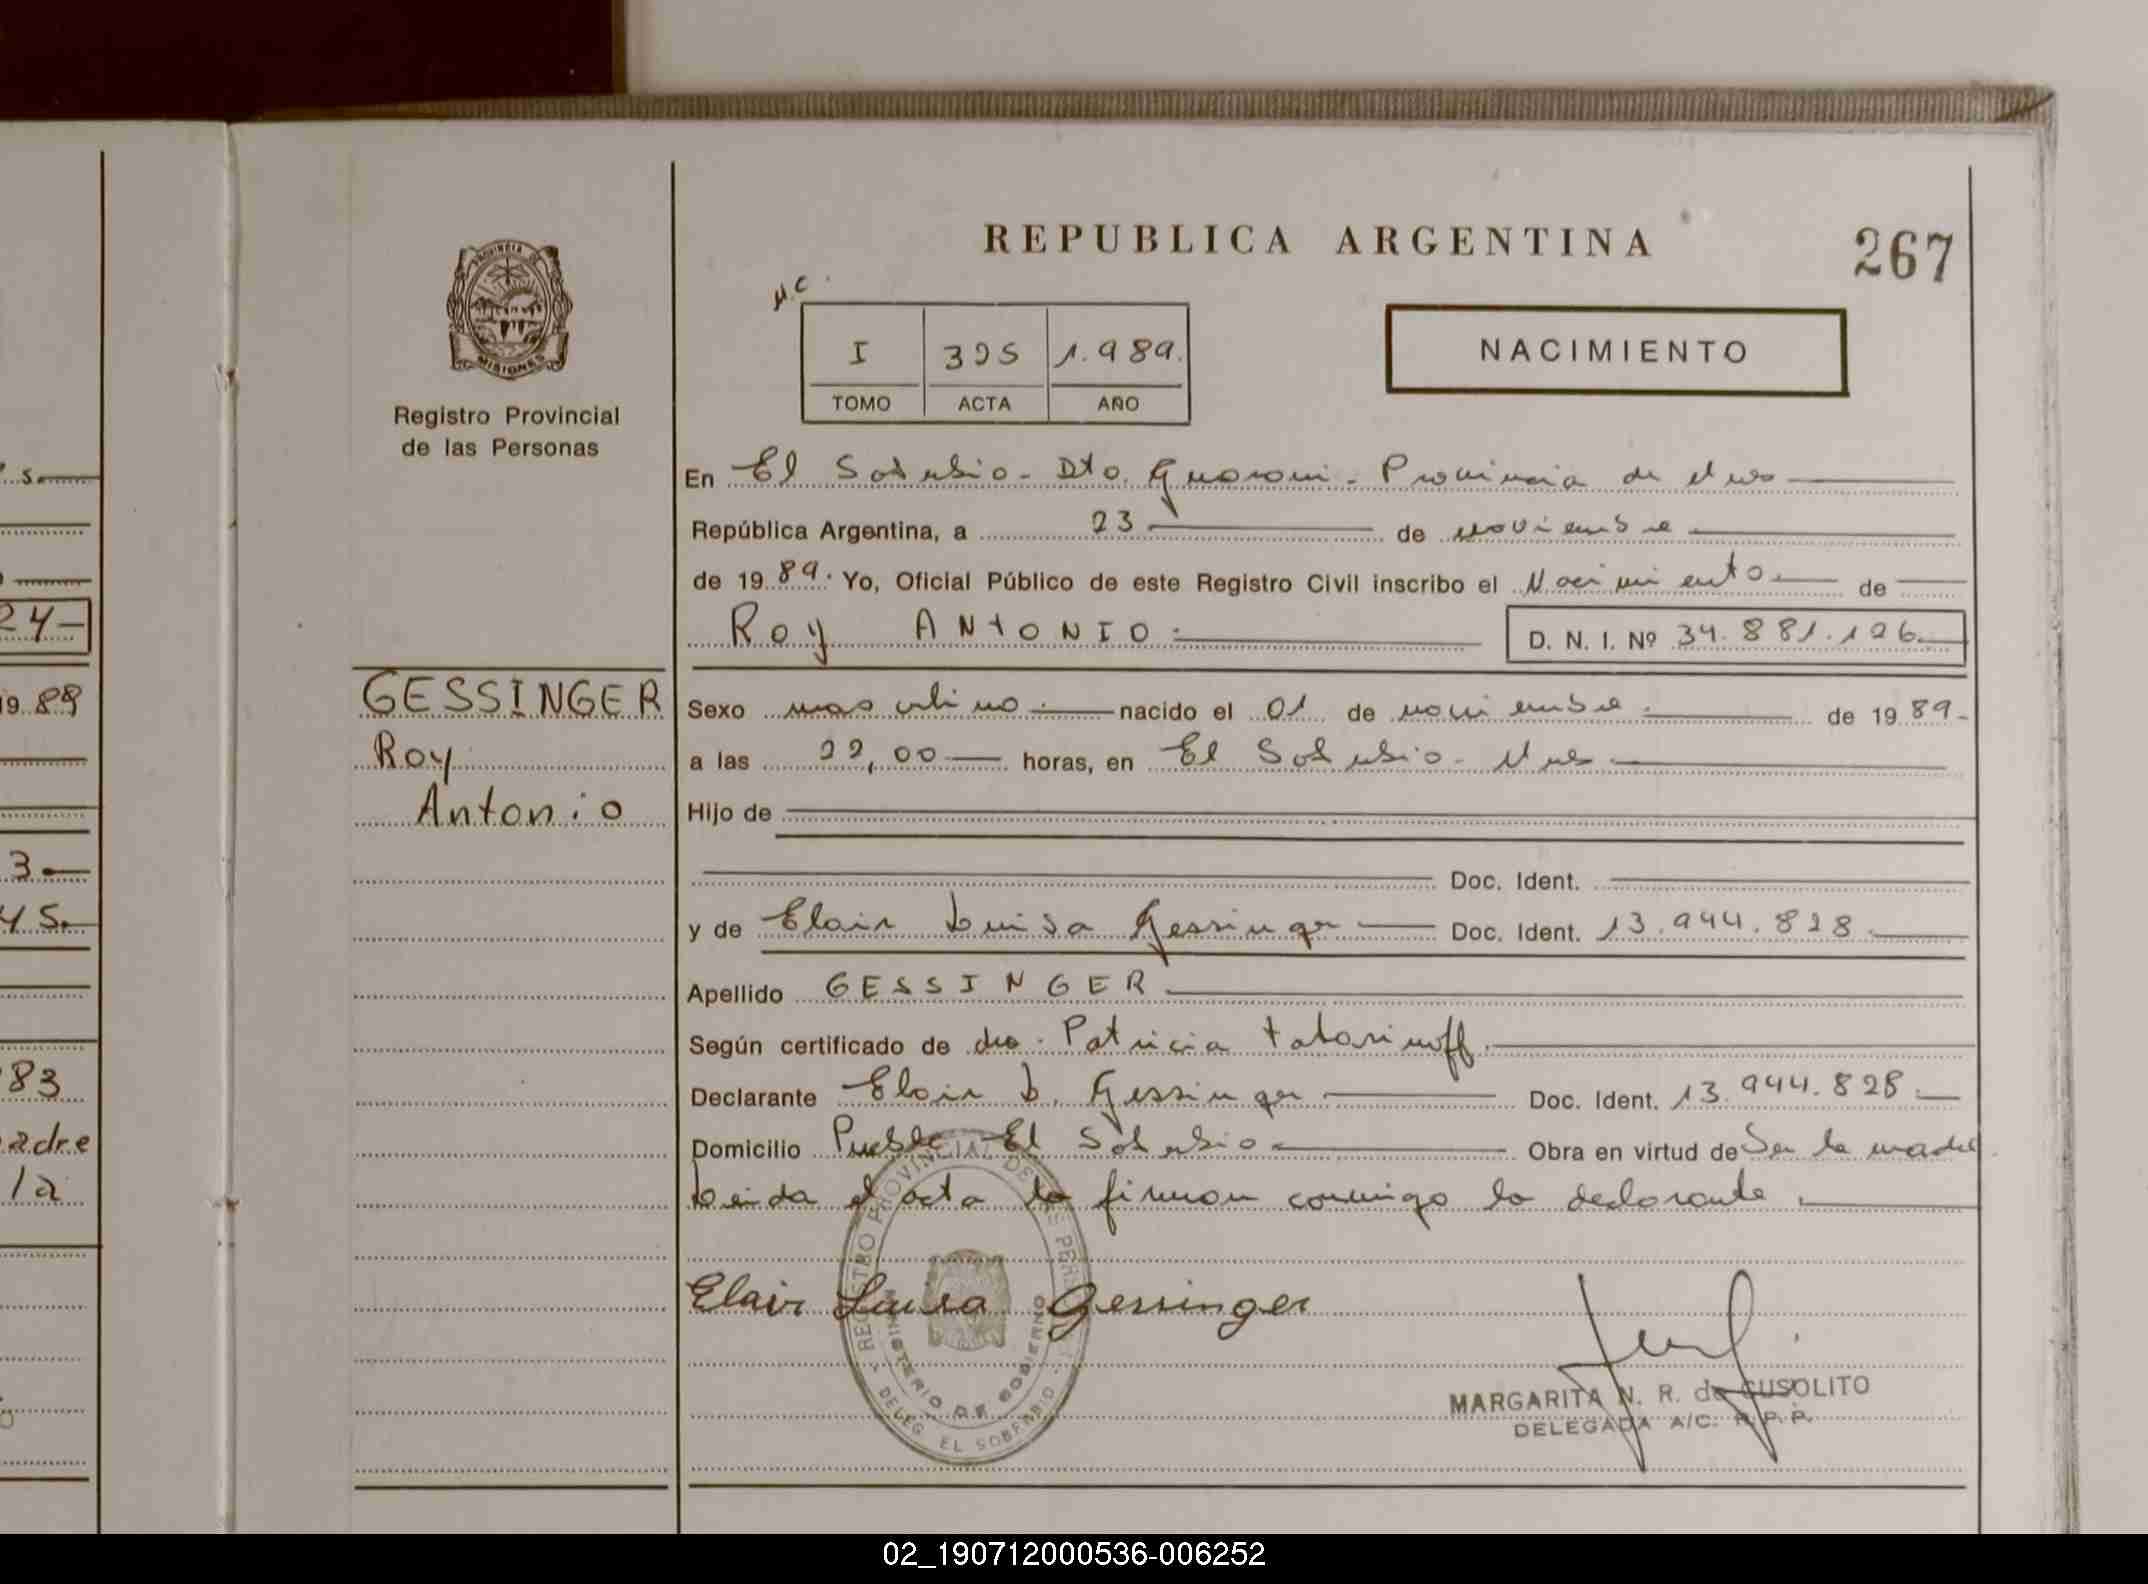 s.
24-
19 89
3
45.
83
adre
la
PROVINCIA DE
MISIONES
Registro Provincial
de las Personas
GESSINGER
Roy
Antonio
REPUBLICA ARGENTINA
267
I 395 1.989.
TOMO ACTA AÑO
NACIMIENTO
En El Soberbio - Dto. Guarani - Provincia de
República Argentina, a 23 de noviembre
de 19 89. Yo, Oficial Público de este Registro Civil inscribo el Nacimiento de
Roy ANTONIO. D. N. I. Nº 34.881.126
Sexo masculino. nacido el 01 de noviembre. de 19 89-
a las 22,00 horas, en El Soberbio - Mnes
Hijo de
Doc. Ident.
y de Elair Luisa Gessinger Doc. Ident. 13.944.828
Apellido GESSINGER
Según certificado de dra. Patricia Tatarinoff.
Declarante Elair L. Gessinger Doc. Ident. 13.944.828.
Domicilio Pueblo El Soberbio Obra en virtud de Ser la madre
Leida el acta la firman conmigo la declarante
Elair Gessinger
REGISTRO PROVINCIAL DE LAS PERSONAS
MINISTERIO DE GOBIERNO
DELEG. EL SOBERBIO
MARGARITA N. R. de CUSOLITO
DELEGADA A/C. R. P. P.
02_190712000536-006252